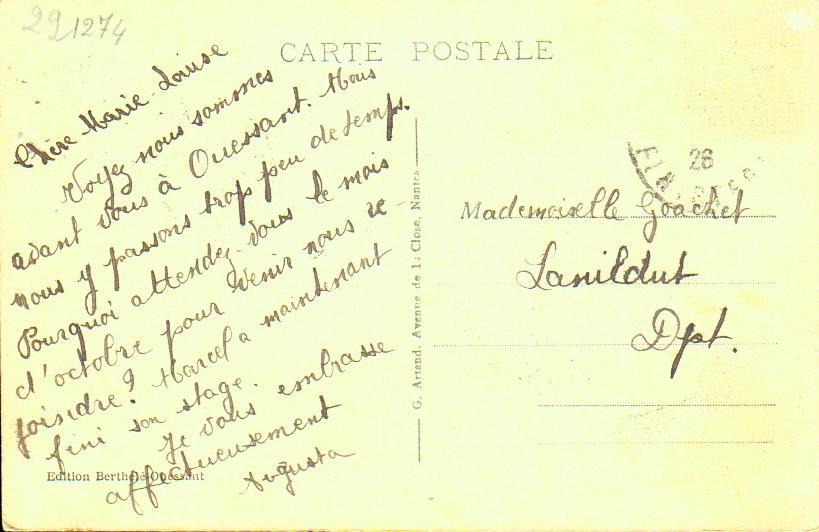 291274
CARTE POSTALE
Chère Marie-Louise
Voyez nous sommes
avant vous à Ouessant. Mais
nous y passons trop peu de temps.
Pourquoi attendez-vous le mois
d'octobre pour venir nous re
joindre? Marcel a maintenant
fini son stage.
Je vous embrasse
affectueusement
Augusta
Edition Berthelé-Ouessant
G. Artaud. Avenue de la Close. Nantes
26
Mademoiselle Goachet
Lanildut
Dpt.